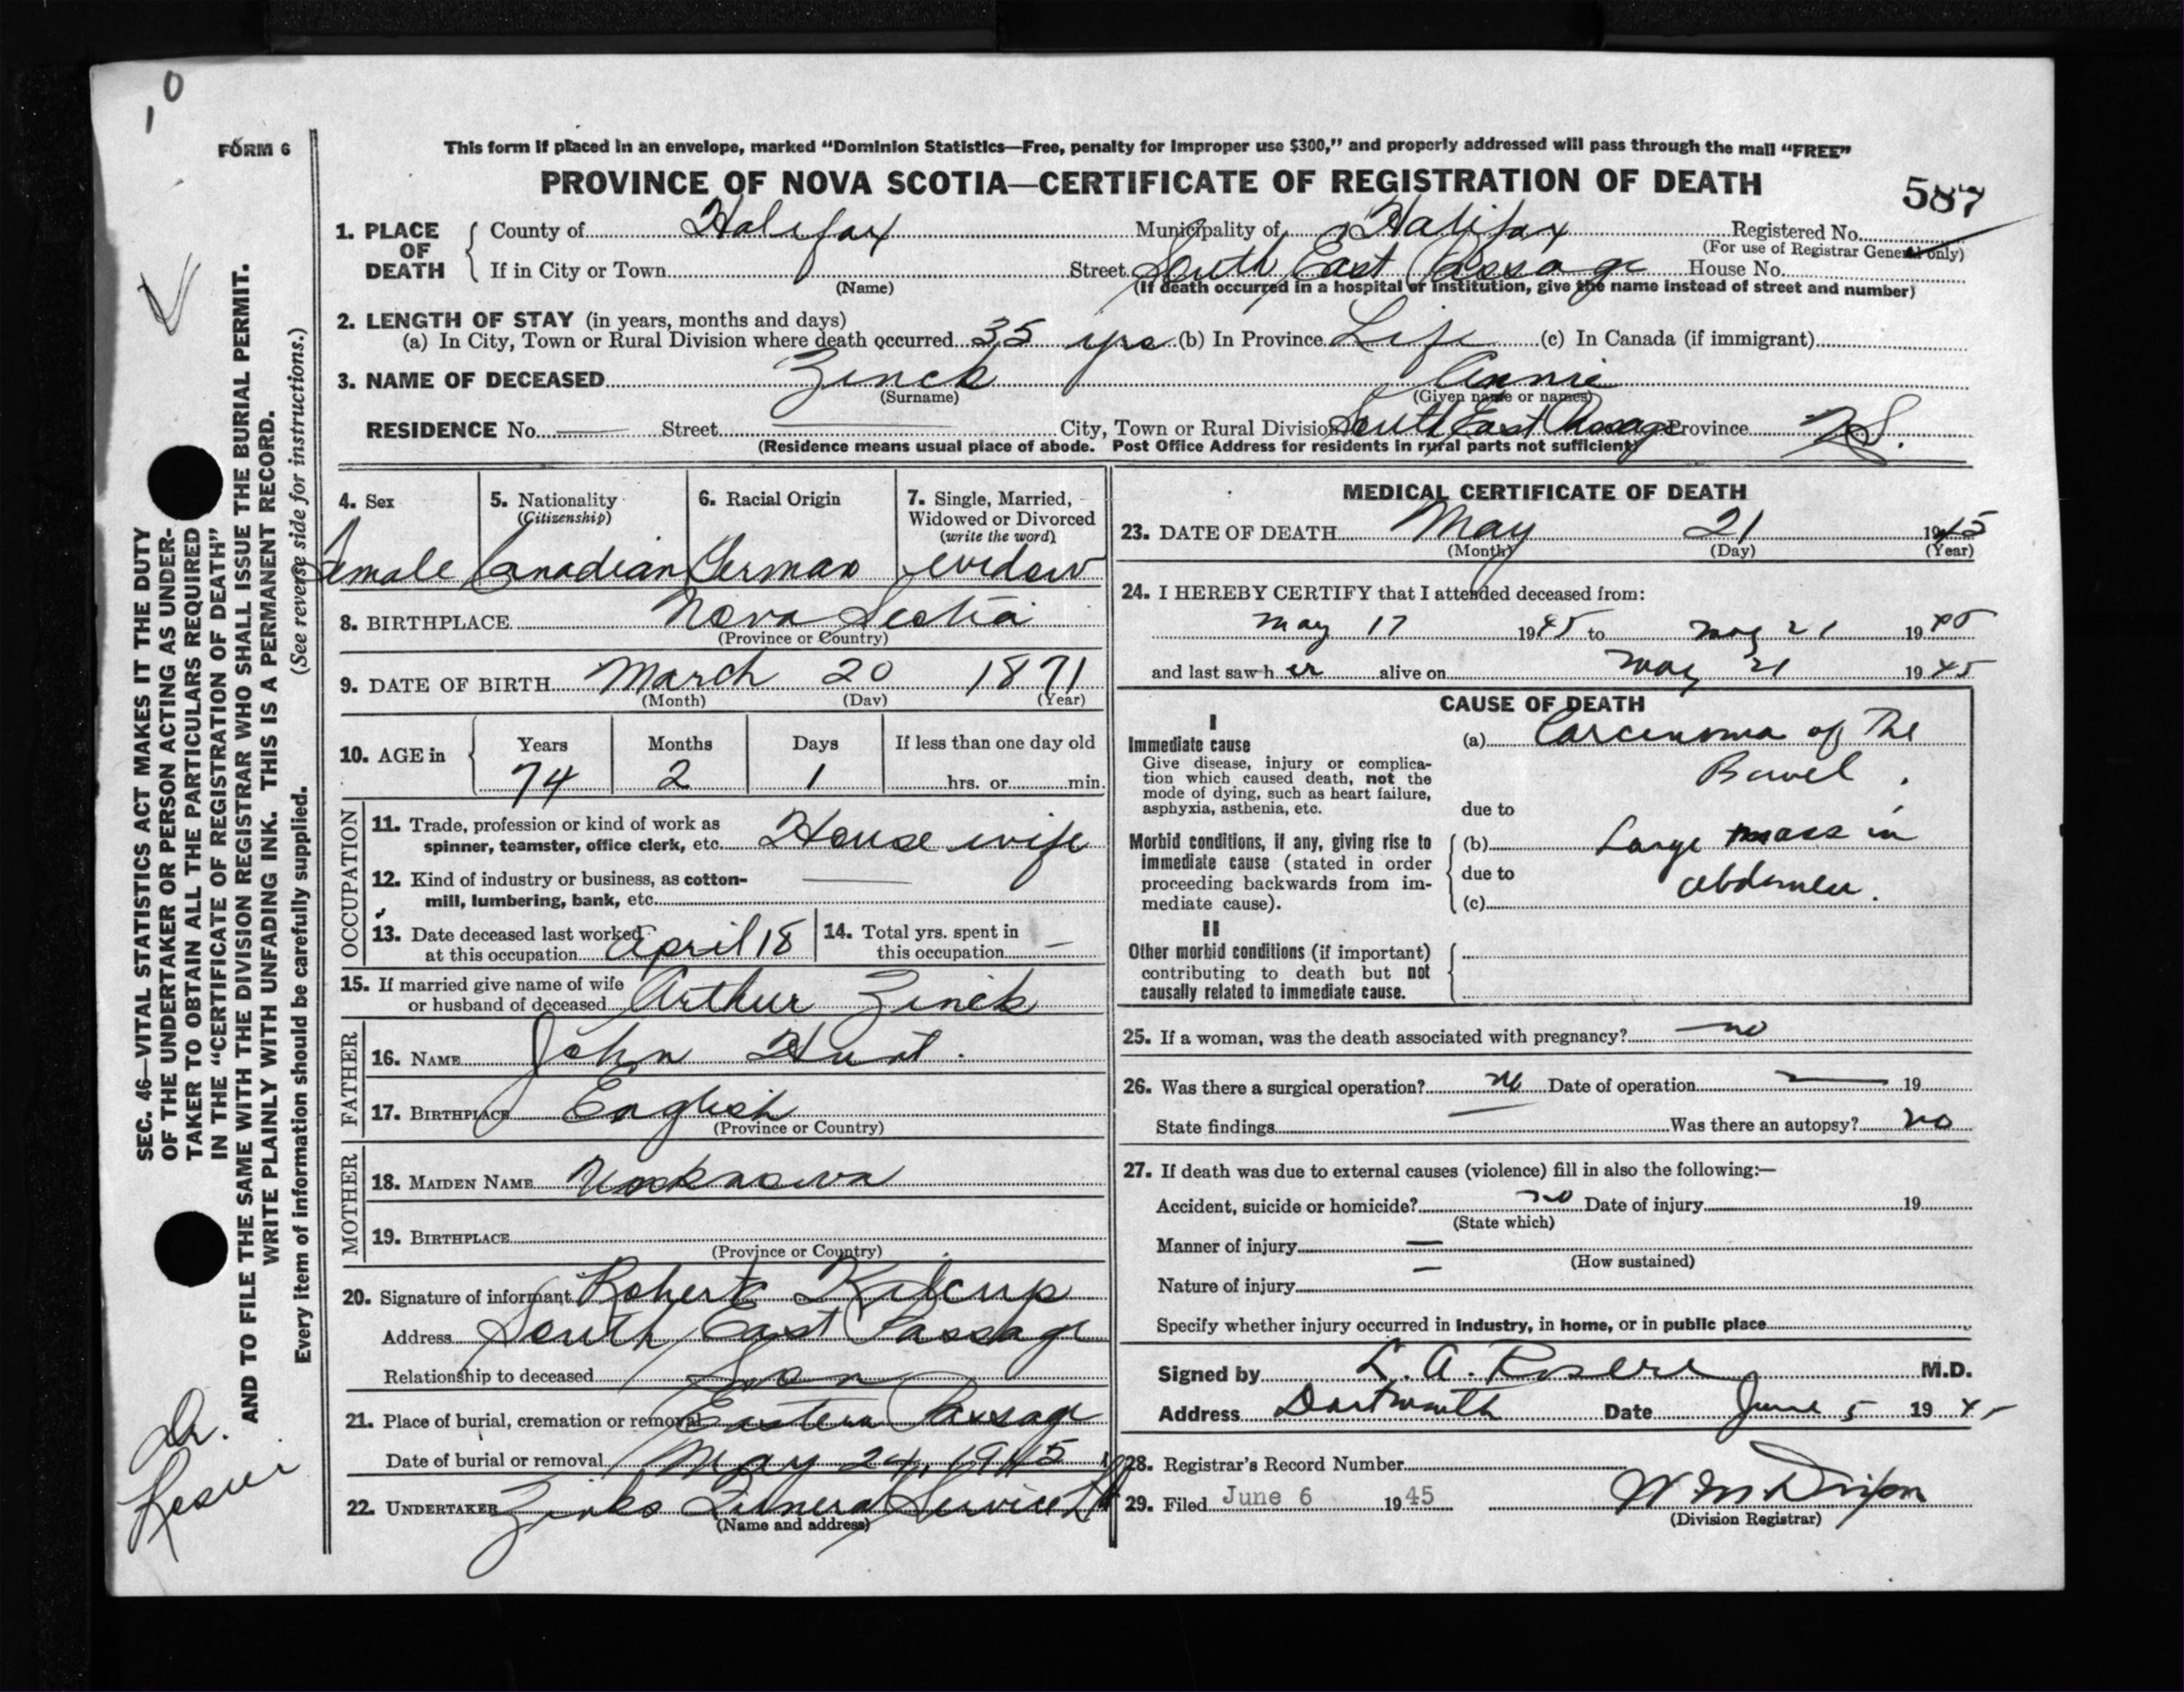 10
FORM 6
This form if placed in an envelope, marked “Dominion Statistics—Free, penalty for improper use $300,” and properly addressed will pass through the mail “FREE”
PROVINCE OF NOVA SCOTIA—CERTIFICATE OF REGISTRATION OF DEATH
587
1. PLACE OF DEATH { County of Halifax Municipality of Halifax Registered No.
(For use of Registrar General only)
If in City or Town Street South East Passage House No.
(Name) (If death occurred in a hospital or institution, give the name instead of street and number)
2. LENGTH OF STAY (in years, months and days)
(a) In City, Town or Rural Division where death occurred 35 yrs (b) In Province Life (c) In Canada (if immigrant)
3. NAME OF DECEASED Zinck Annie
(Surname) (Given name or names)
RESIDENCE No. — Street — City, Town or Rural Division South East Passage Province N.S.
(Residence means usual place of abode. Post Office Address for residents in rural parts not sufficient)
4. Sex 5. Nationality 6. Racial Origin 7. Single, Married,
(Citizenship) Widowed or Divorced
(write the word)
Female Canadian German widow
8. BIRTHPLACE Nova Scotia
(Province or Country)
9. DATE OF BIRTH March 20 1871
(Month) (Day) (Year)
10. AGE in { Years Months Days If less than one day old
74 2 1 hrs. or min.
OCCUPATION
11. Trade, profession or kind of work as
spinner, teamster, office clerk, etc. House wife
12. Kind of industry or business, as cotton- —
mill, lumbering, bank, etc.
13. Date deceased last worked
at this occupation April 18
14. Total yrs. spent in
this occupation —
15. If married give name of wife
or husband of deceased Arthur Zinck
FATHER
16. NAME John Hunt.
17. BIRTHPLACE English
(Province or Country)
MOTHER
18. MAIDEN NAME Unknown
19. BIRTHPLACE
(Province or Country)
20. Signature of informant Robert Kilcup
Address South East Passage
Relationship to deceased Son
21. Place of burial, cremation or removal Eastern Passage
Date of burial or removal May 24, 1945
22. UNDERTAKER Zinks Funeral Service
(Name and address)
MEDICAL CERTIFICATE OF DEATH
23. DATE OF DEATH May 21 1945
(Month) (Day) (Year)
24. I HEREBY CERTIFY that I attended deceased from:
May 17 1945 to May 21 1945
and last saw h er alive on May 21 1945
CAUSE OF DEATH
I
Immediate cause (a) Carcinoma of the
Give disease, injury or complica-
tion which caused death, not the Bowel.
mode of dying, such as heart failure,
asphyxia, asthenia, etc. due to
Morbid conditions, if any, giving rise to (b) Large mass in
immediate cause (stated in order
proceeding backwards from im- due to abdomen.
mediate cause). (c)
II
Other morbid conditions (if important)
contributing to death but not
causally related to immediate cause.
25. If a woman, was the death associated with pregnancy? no
26. Was there a surgical operation? no Date of operation — 19
State findings — Was there an autopsy? no
27. If death was due to external causes (violence) fill in also the following:—
Accident, suicide or homicide? no Date of injury 19
(State which)
Manner of injury —
(How sustained)
Nature of injury —
Specify whether injury occurred in industry, in home, or in public place
Signed by L. A. M.D.
Address Dartmouth Date June 5 1945
28. Registrar's Record Number
29. Filed June 6 1945
(Division Registrar)
SEC. 46—VITAL STATISTICS ACT MAKES IT THE DUTY
OF THE UNDERTAKER OR PERSON ACTING AS UNDER-
TAKER TO OBTAIN ALL THE PARTICULARS REQUIRED
IN THE “CERTIFICATE OF REGISTRATION OF DEATH”
AND TO FILE THE SAME WITH THE DIVISION REGISTRAR WHO SHALL ISSUE THE BURIAL PERMIT.
WRITE PLAINLY WITH UNFADING INK. THIS IS A PERMANENT RECORD.
Every item of information should be carefully supplied. (See reverse side for instructions.)
Dr.